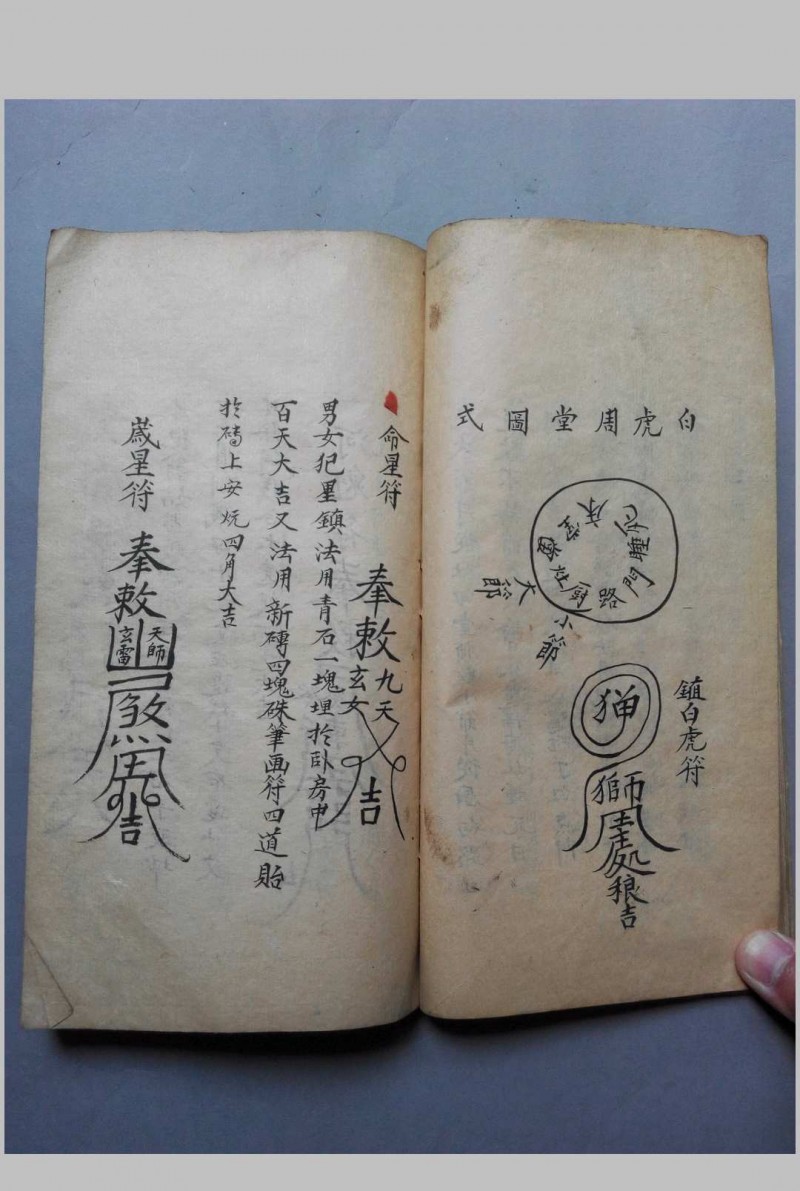 白虎周堂圖式
床
死
睡
門
路
廚
灶
堂
大節
小節
鎮白虎符
猫
獅
處
狼
吉
命星符
奉敕
九天
玄女
吉
男女犯星鎮法用青石一塊埋於臥房中
百天大吉又法用新磚四塊硃筆画符四道貼
於磚上安炕四角大吉
歲星符
奉敕
天師
玄雷
煞
吉